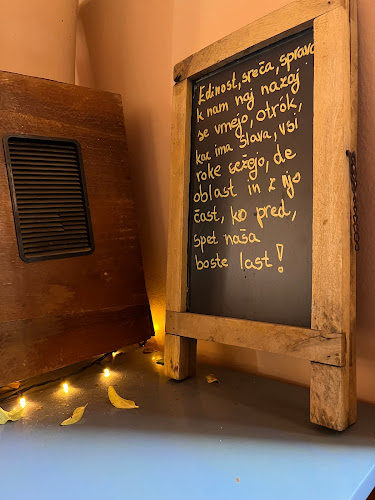 Edinost, sreča, sprava
k nam naj nazaj
se vrnejo, otrók,
kar ima Slava, vsi
roke sežejo, de
oblast in z njo
čast, ko pred,
spet naša
boste last!